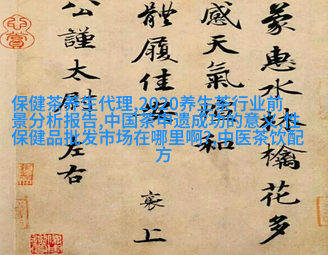 保健茶养生代理,2020养生茶行业前
景分析报告,中国茶申遗成功的意义,性
保健品批发市场在哪里啊?,中医茶饮配
方
蒙惠水林檎花多
感天氣暄和
體履佳安
襄上
公謹太尉左右